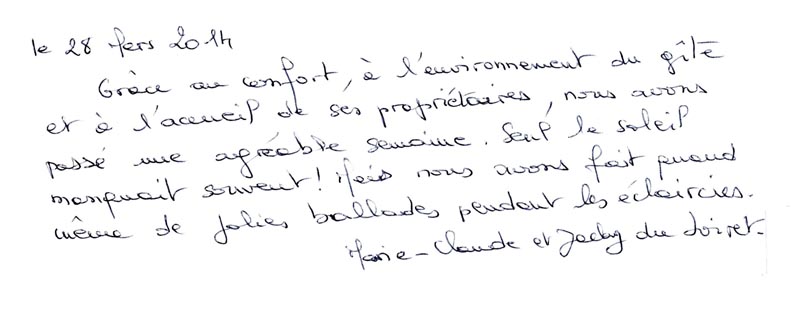 le 28 Mars 2014
Grâce au confort, à l'environnement du gîte
et à l'accueil de ses propriétaires, nous avons
passé une agréable semaine. Seul le soleil
manquait souvent ! Mais nous avons fait quand
même de jolies ballades pendant les éclaircies.
Marie-Claude et Jacky du Loiret.